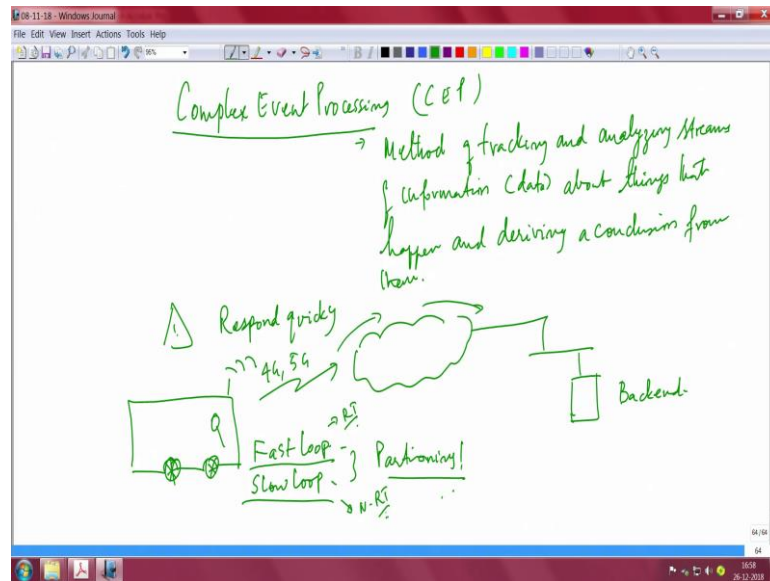 08-11-18 - Windows Journal
File Edit View Insert Actions Tools Help
96%
Complex Event Processing (CEP)
→ Method of tracking and analyzing streams
of information (data) about things that
happen and deriving a conclusion from
them.
! Respond quickly
4G, 5G
Backend.
Fast Loop → RT
Slow Loop → N-RT
} Partioning!
64/64
64
16:58
26-12-2018